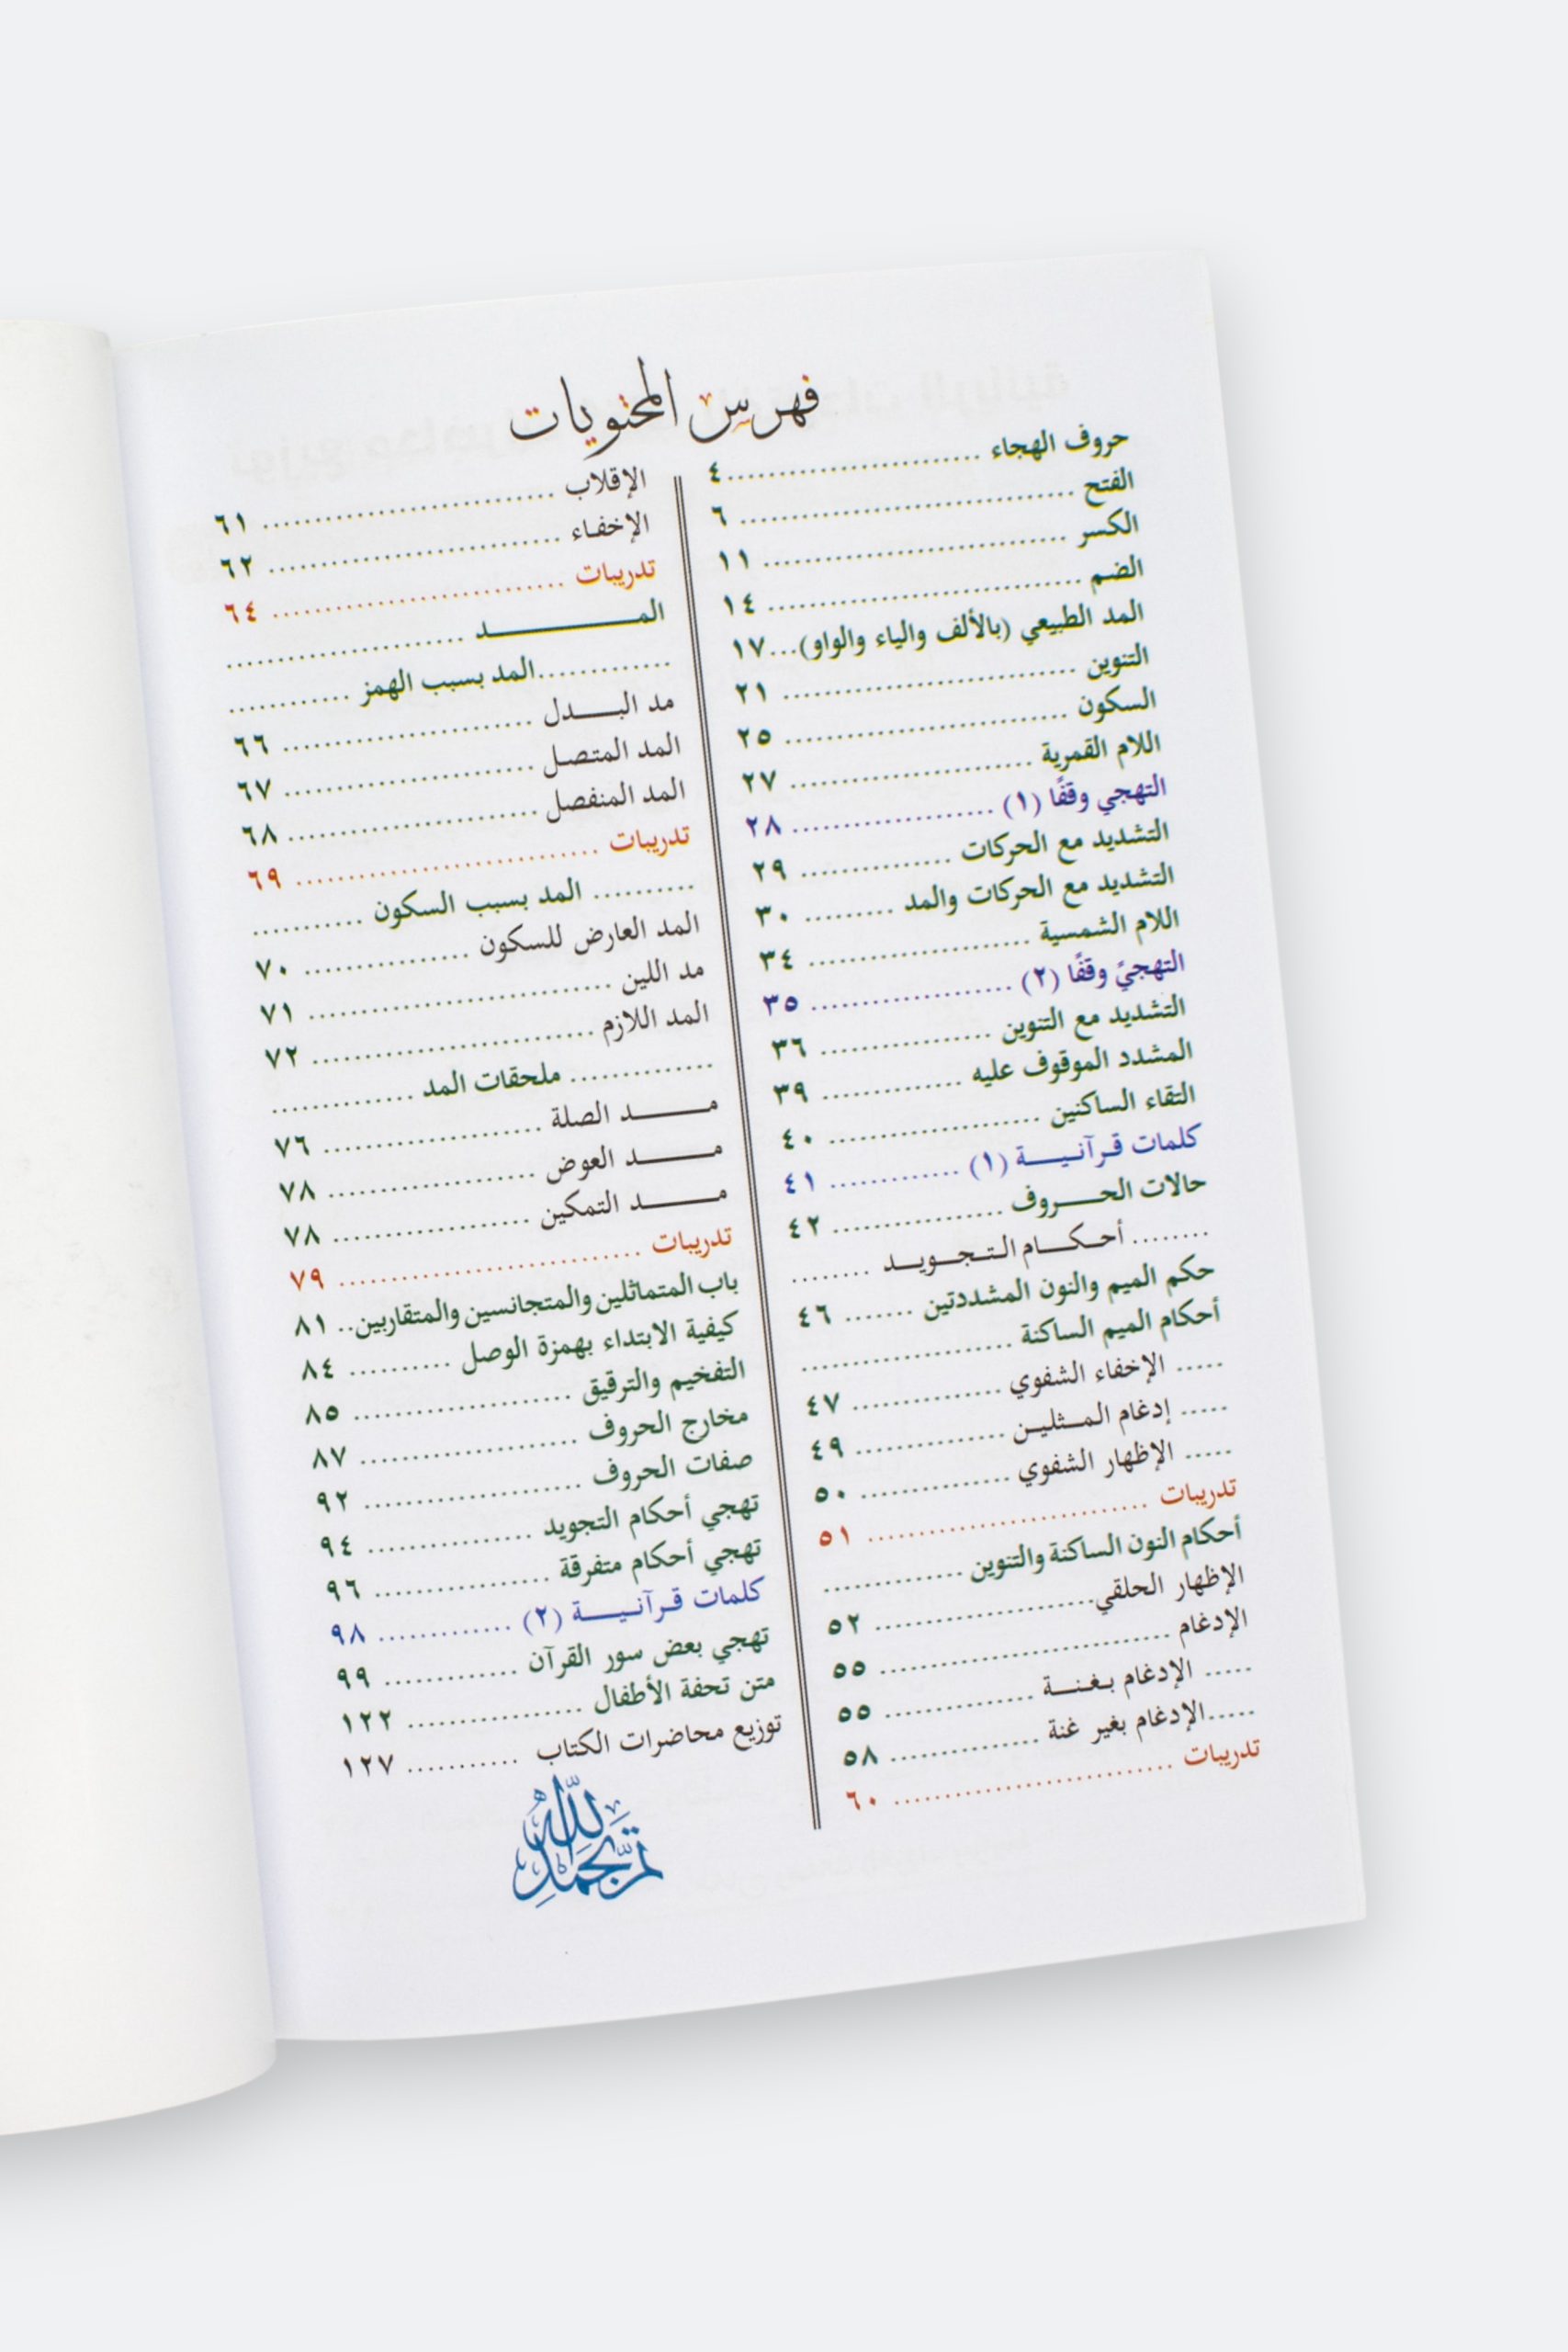 فهرس المحتويات
حروف الهجاء ........................ ٤
الفتح ................................ ٦
الكسر ............................. ١١
الضم .............................. ١٤
المد الطبيعي (بالألف والياء والواو)... ١٧
التنوين ............................ ٢١
السكون ........................... ٢٥
اللام القمرية ........................ ٢٧
التهجي وقفًا (١) .................... ٢٨
التشديد مع الحركات ............... ٢٩
التشديد مع الحركات والمد ......... ٣٠
اللام الشمسية ...................... ٣٤
التهجيً وقفًا (٢) .................... ٣٥
التشديد مع التنوين ................. ٣٦
المشدد الموقوف عليه .............. ٣٩
التقاء الساكنين ..................... ٤٠
كلمات قرآنيـة (١) ............. ٤١
حالات الحــروف ................. ٤٢
........ أحـكــام التـجـويـد ........
حكم الميم والنون المشددتين ....... ٤٦
أحكام الميم الساكنة .....................
..... الإخفاء الشفوي ............... ٤٧
..... إدغام المـثليـن ............... ٤٩
..... الإظهار الشفوي ............... ٥٠
تدريبات ........................... ٥١
أحكام النون الساكنة والتنوين ..............
الإظهار الحلقي..................... ٥٢
الإدغام ............................ ٥٥
..... الإدغام بـغـنـة ............... ٥٥
.....الإدغام بغير غنة ............... ٥٨
تدريبات ........................... ٦٠
الإقلاب ............................ ٦١
الإخفاء ............................ ٦٢
تدريبات ............................ ٦٤
المــــــــد .......................
.............المد بسبب الهمز ............
مد البــدل ......................... ٦٦
المد المتصل ........................ ٦٧
المد المنفصل ........................ ٦٨
تدريبات ............................. ٦٩
.......... المد بسبب السكون ...........
المد العارض للسكون ................ ٧٠
مد اللين ............................. ٧١
المد اللازم ........................... ٧٢
.............. ملحقات المد ..............
مــــد الصلة ..................... ٧٦
مــــد العوض .................... ٧٨
مــــد التمكين ................... ٧٨
تدريبات ............................. ٧٩
باب المتماثلين والمتجانسين والمتقاربين.. ٨١
كيفية الابتداء بهمزة الوصل .......... ٨٤
التفخيم والترقيق ..................... ٨٥
مخارج الحروف ..................... ٨٧
صفات الحروف ..................... ٩٢
تهجي أحكام التجويد ................ ٩٤
تهجي أحكام متفرقة ................. ٩٦
كلمات قرآنيـة (٢) ............. ٩٨
تهجي بعض سور القرآن ............. ٩٩
متن تحفة الأطفال ................. ١٢٢
توزيع محاضرات الكتاب ........... ١٢٧
تم بحمد الله